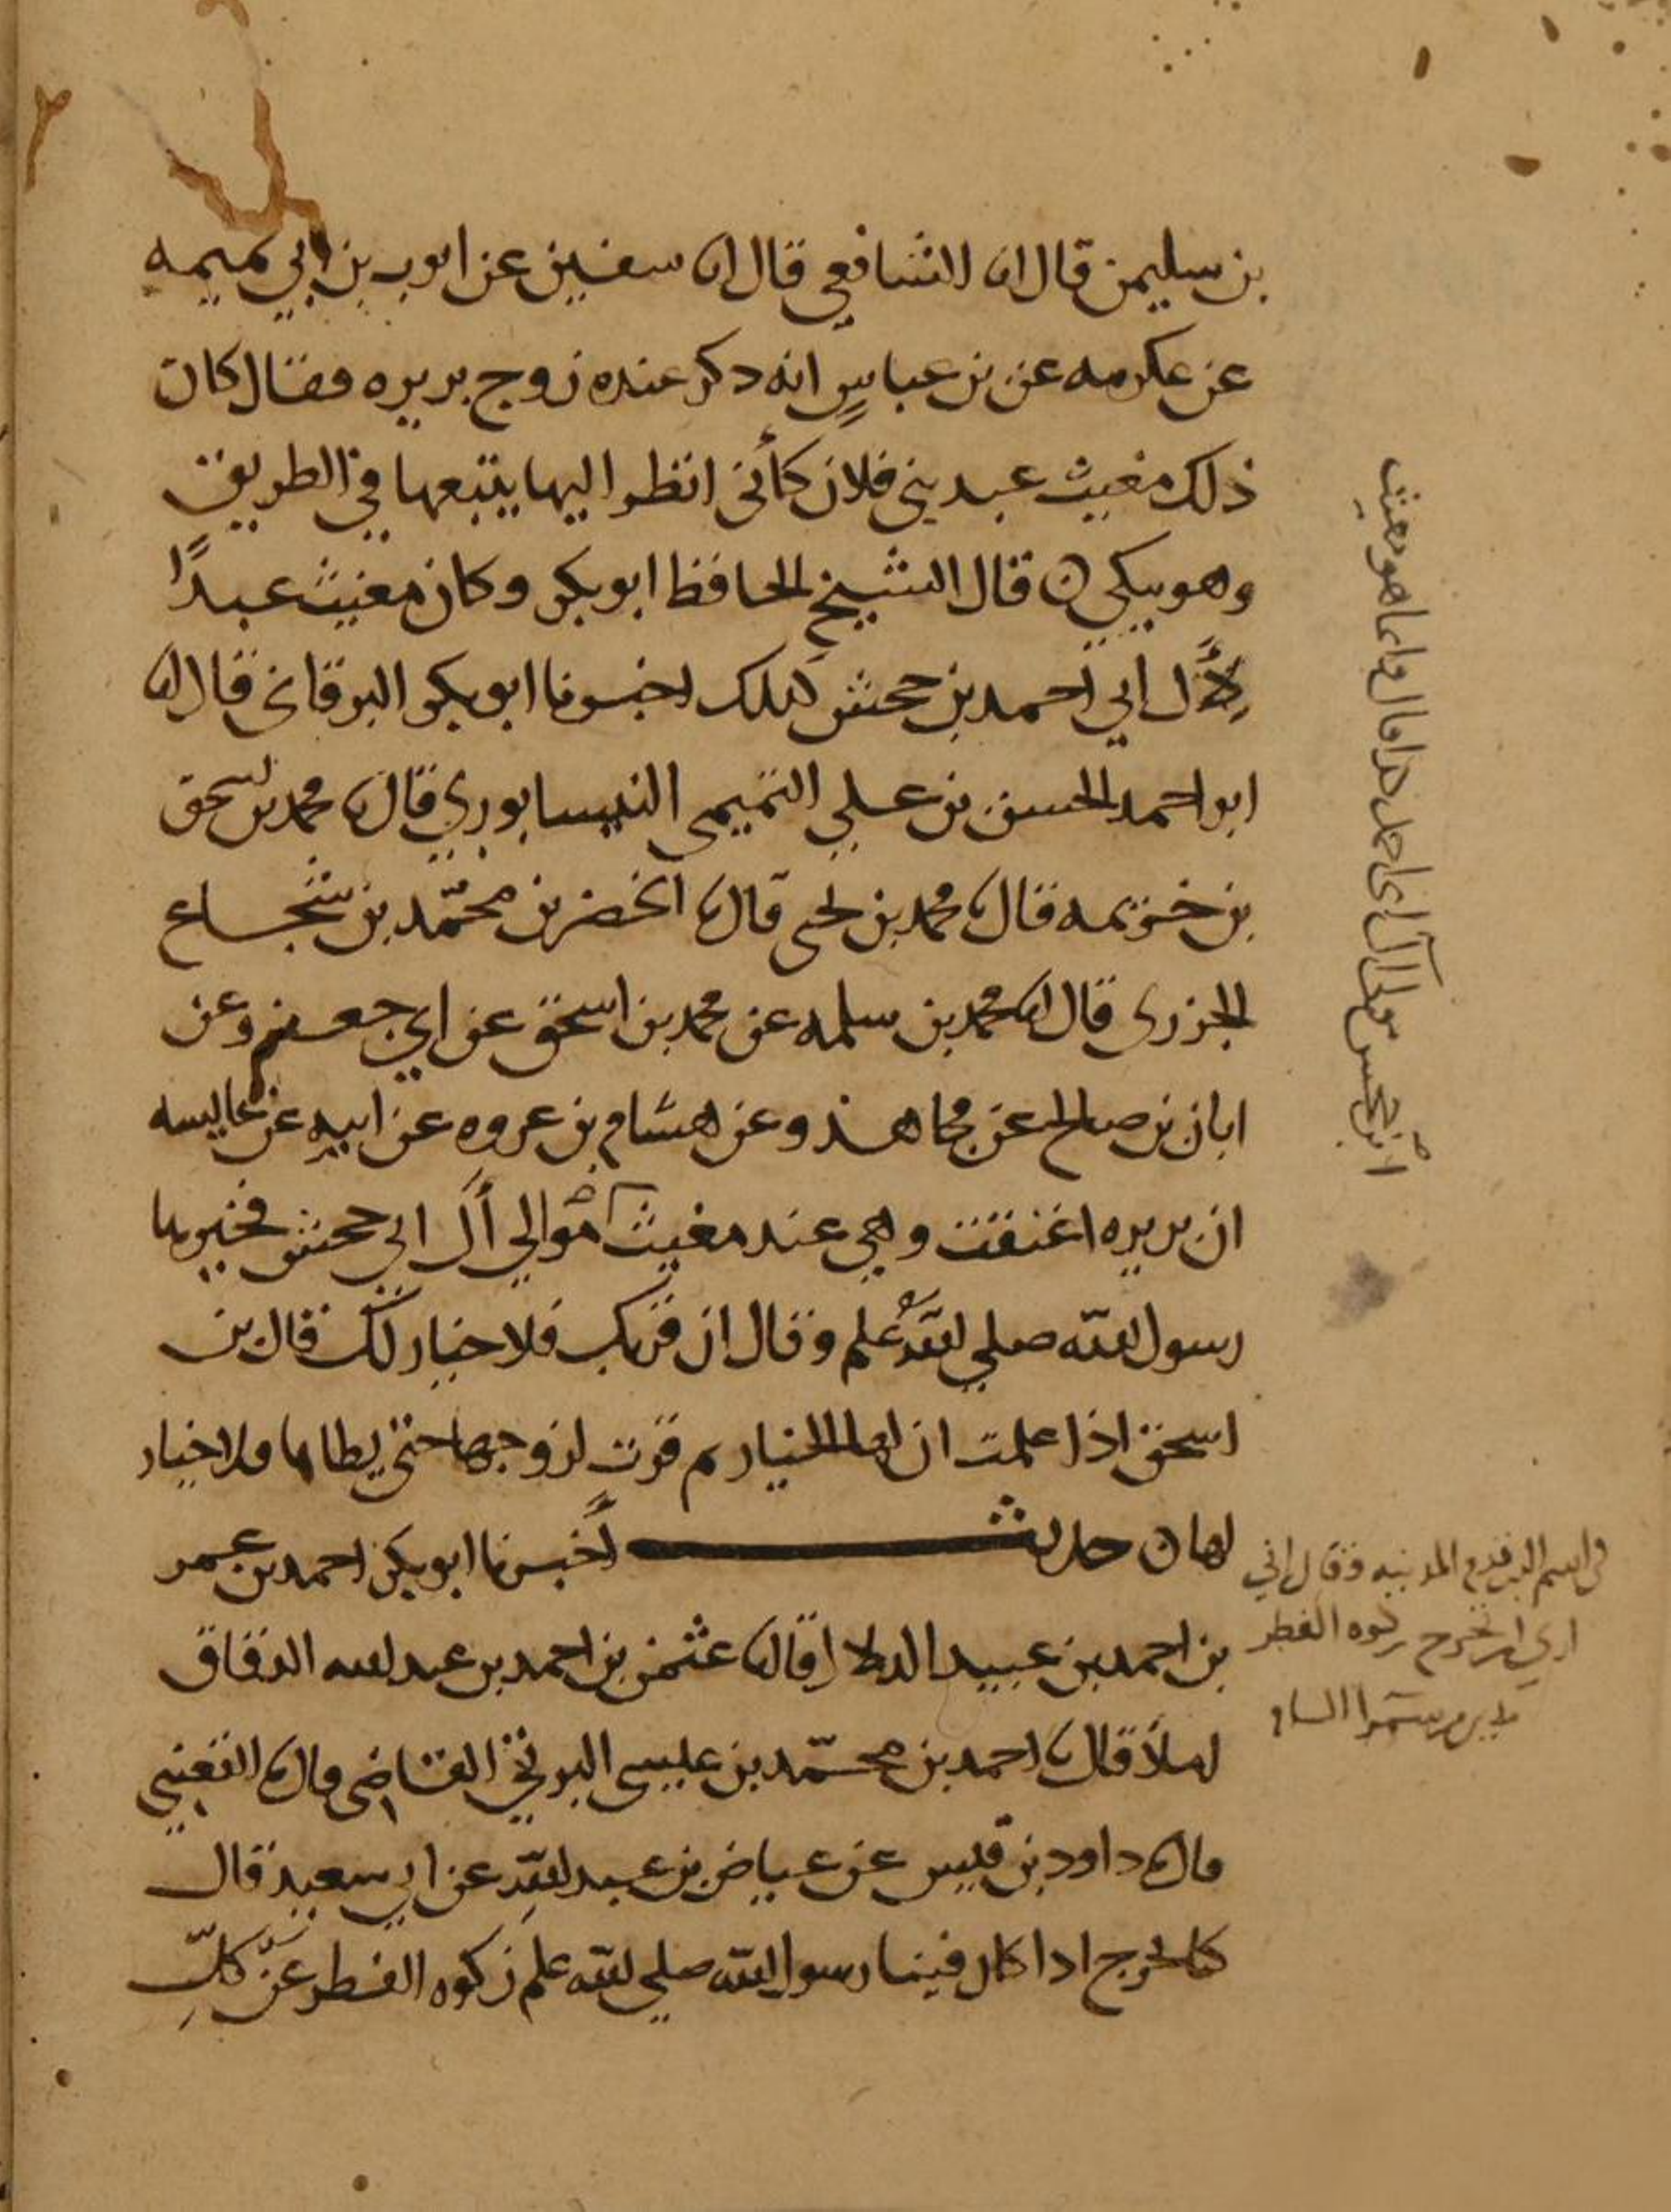 بن سليمن قال انا الشافعي قال انا سفين عن ايوب بن ابي تميمه
عن عكرمه عن بن عباس انه ذكر عنده زوج بريره فقال كان
ذلك مغيث عبد بني فلان كأني انظر اليها يتبعها في الطريق
وهو يبكي ن قال الشيخ الحافظ ابو بكر وكان مغيث عبدًا
لآل ابي احمد بن جحش كذلك اخبرنا ابو بكر البرقاني قال انا
ابو احمد الحسين بن علي التميمي النيسابوري قال نا محمد بن اسحق
بن خزيمه قال نا محمد بن يحيى قال نا الخضر بن محمّد بن شجاع
الجزري قال انا محمد بن سلمه عن محمد بن اسحق عن ابي جعفر وعن
ابان بن صالح عن مجاهد وعن هشام بن عروه عن ابيه عن عايشه
ان بريره اعتقت وهي عند مغيث موالي آل ابي جحش فخيرها
رسول الله صلى الله علم وقال ان قربك فلا خيار لك قال بن
اسحق اذا علمت ان لها الخيار ثم قرت لزوجها حتى يطاها فلا خيار
لها ن حديث أخبرنا ابو بكر احمد بن عمر
بن احمد بن عبيد الدلال قال نا عثمن بن احمد بن عبد الله الدقاق
املاً قال نا احمد بن محمّد بن عيسى البرتي القاضي قال نا القعنبي
قال نا داود بن قيس عن عياض بن عبد الله عن ابي سعيد قال
كنا نخرج اذا كان فينا رسول الله صلى الله علم زكوه الفطر عن كلّ
ابن جحش مولى آل ابي احمد كذا قال وانما هو مغيث
المدينه وقال اني
زكوه الفطر